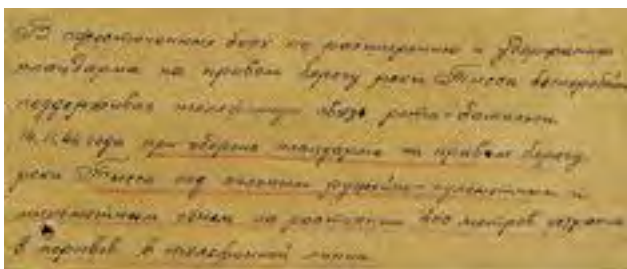 В ожесточенных боях по расширению и удержанию
плацдарма на правом берегу реки Тисса бесперебойно
поддерживал телефонную связь рота-батальон
14.11.44 года при обороне плацдарма на правом берегу
реки Тисса под сильным ружейно-пулеметным и
минометным огнем на расстоянии 200 метров устранил
8 порывов в телефонной линии